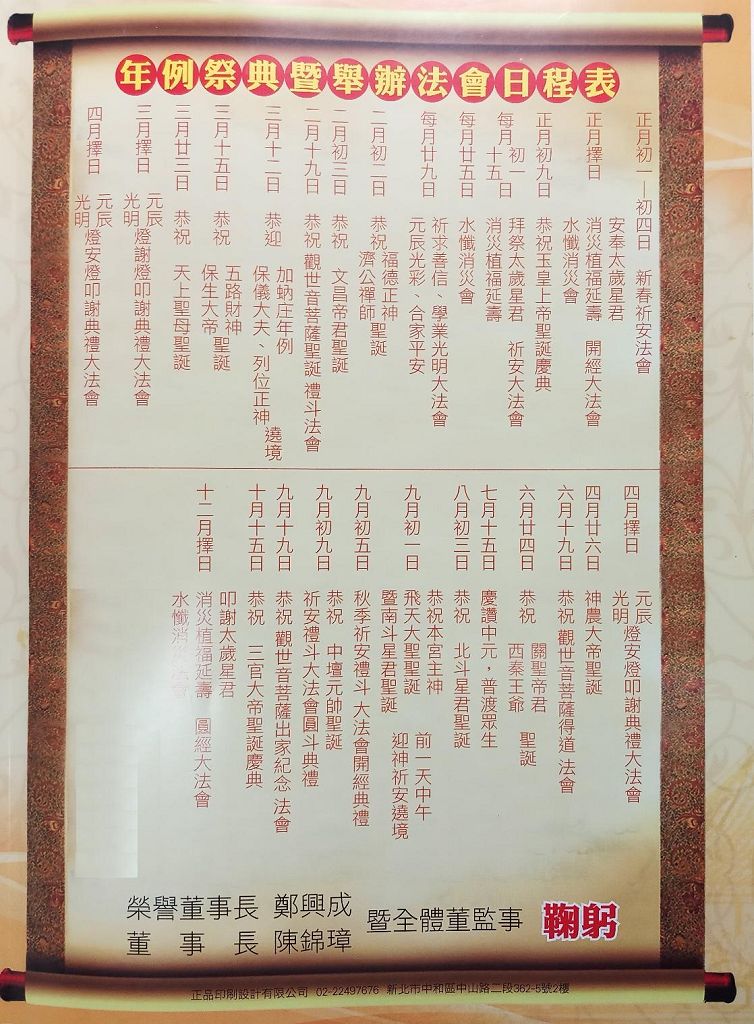 年例祭典暨舉辦法會日程表
正月初一—初四日 新春祈安法會
安奉太歲星君
正月擇日 消災植福延壽 開經大法會
水懺消災會
正月初九日 恭祝玉皇上帝聖誕慶典
每月初一 拜祭太歲星君 祈安大法會
十五日 消災植福延壽
每月廿五日 水懺消災會
祈求善信、學業光明大法會
每月廿九日 元辰光彩、合家平安
福德正神
二月初二日 恭祝 聖誕
濟公禪師
二月初三日 恭祝 文昌帝君聖誕
二月十九日 恭祝 觀世音菩薩聖誕 禮斗法會
加蚋庄年例
三月十二日 恭迎 遶境
保儀大夫、列位正神
五路財神
三月十五日 恭祝 聖誕
保生大帝
三月廿三日 恭祝 天上聖母聖誕
元辰
三月擇日 燈謝燈叩謝典禮大法會
光明
元辰
四月擇日 燈安燈叩謝典禮大法會
光明
元辰
四月擇日 燈安燈叩謝典禮大法會
光明
四月廿六日 神農大帝聖誕
六月十九日 恭祝 觀世音菩薩得道 法會
關聖帝君
六月廿四日 恭祝 聖誕
西秦王爺
七月十五日 慶讚中元，普渡眾生
八月初三日 恭祝 北斗星君聖誕
恭祝本宮主神 前一天中午
九月初一日 飛天大聖聖誕 迎神祈安遶境
暨南斗星君聖誕
九月初五日 秋季祈安禮斗 大法會開經典禮
恭祝 中壇元帥聖誕
九月初九日 祈安禮斗大法會圓斗典禮
九月十九日 恭祝 觀世音菩薩出家紀念 法會
十月十五日 恭祝 三官大帝聖誕慶典
叩謝太歲星君
十二月擇日 消災植福延壽 圓經大法會
水懺消災法會
榮譽董事長 鄭興成
董事長 陳錦璋
暨全體董監事 鞠躬
正品印刷設計有限公司 02-22497676 新北市中和區中山路二段362-5號2樓